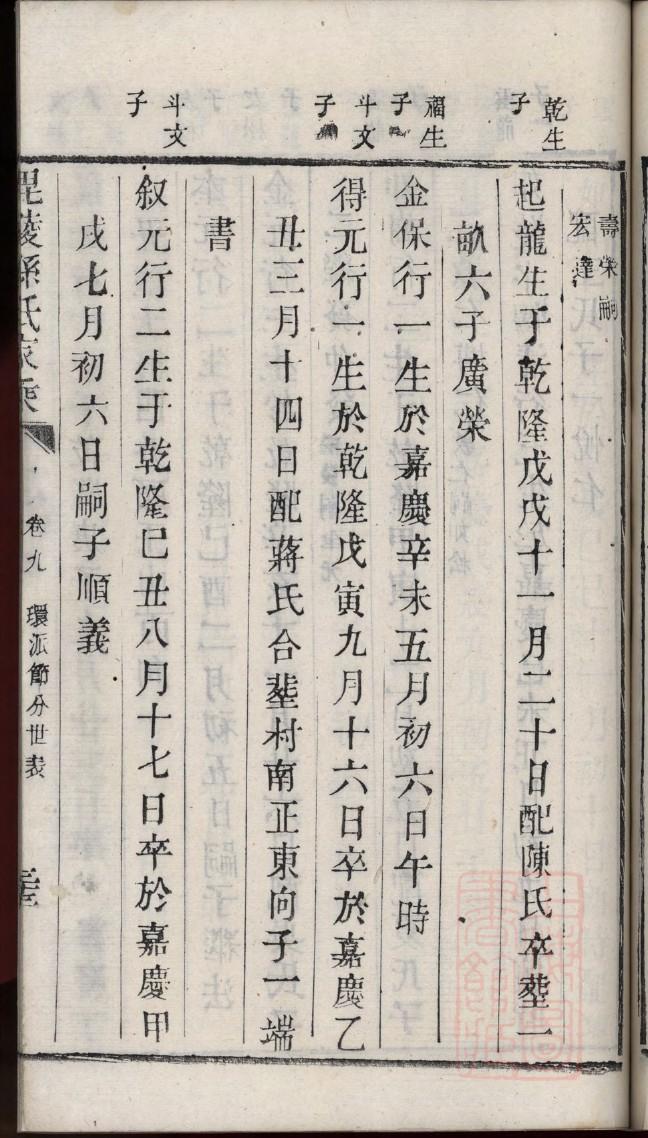 壽榮嗣
宏達
乾生
子
起龍生于乾隆戊戌十一月二十日配陳氏卒塟一
畝六子廣榮
福生
子
金保行一生於嘉慶辛未五月初六日午時
斗文
子
得元行一生於乾隆戊寅九月十六日卒於嘉慶乙
丑三月十四日配蔣氏合塟村南正東向子一端
書
斗文
子
叙元行二生于乾隆己丑八月十七日卒於嘉慶甲
戌七月初六日嗣子順義
毘陵孫氏家乘
卷九
環派節分世表